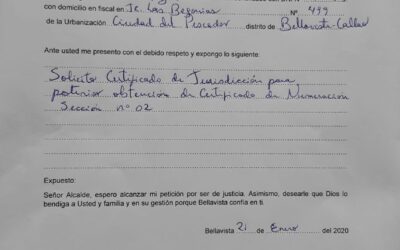 con domicilio en fiscal en Jr. Las Begonias Nº 499
de la Urbanización Ciudad del Pescador distrito de Bellavista-Callao
Ante usted me presento con el debido respeto y expongo lo siguiente:
Solicito Certificado de Jurisdicción para
posterior obtencion de Certificado de Numeracion
Sección nº 02
Expuesto:
Señor Alcalde, espero alcanzar mi petición por ser de justicia. Asimismo, desearle que Dios lo
bendiga a Usted y familia y en su gestión porque Bellavista confía en ti.
Bellavista 21 de Enero del 2020